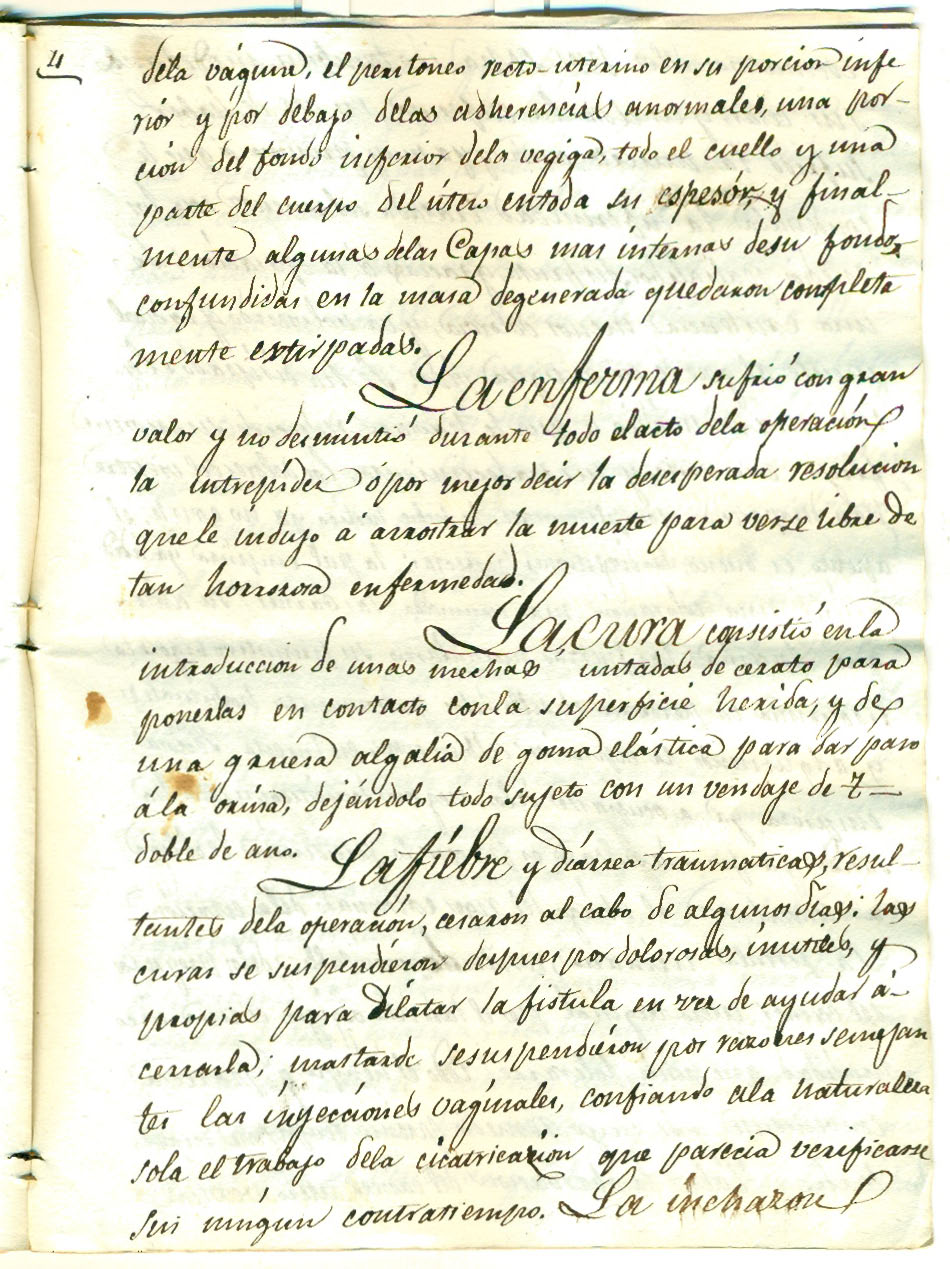 4
dela vágina, el peritoneo recto-uterino en su porcion infe
riór y por debajo delas adherencias anormales, una por-
ción del fondo inferior dela vegiga, todo el cuello y una
parte del cuerpo del útero entoda su espesór, y final-
mente algunas delas Capas mas internas desu fondo
confundidas en la masa degenerada quedaron completa
mente extirpadas.
La enferma sufrió con gran
valor y no desmintió durante todo el acto dela operación
la intrepidez ó por mejor decir la desesperada resolucion
que le indujo á arrostrar la muerte para verse libre de
tan horrorosa enfermedad.
La cura consistió en la
introduccion de unas mechas untadas de cerato para
ponerlas en contacto conla superficie herida, y de
una gruesa algalia de goma elástica para dar paso
á la orina, dejándolo todo sujeto con un vendaje de T
doble de ano. La fiebre y diárrea traumaticas, resul-
tantes dela operación, cesaron al cabo de algunos dias: las
curas se suspendiéron despues por dolorosas, inutiles, y
propias para dilatar la fistula en vez de ayudar á-
cerrarla; mastarde sesuspendiéron por razones semejan
tes las inyecciónes váginales, confiando ala naturaleza
sola el trabajo dela cicatrización que parecia verificarse
sin ningun contratiempo. La inchazon